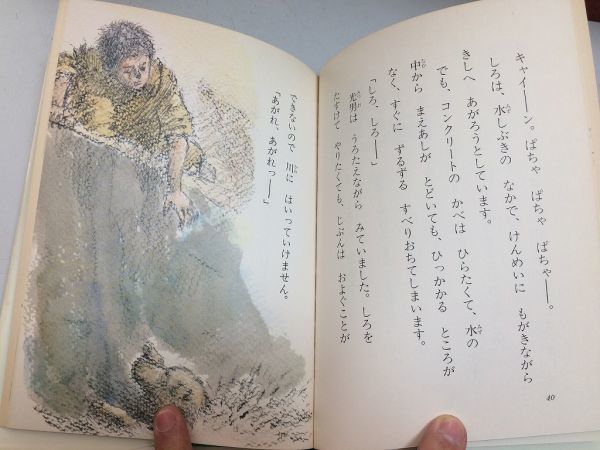 キャイーン。ばちゃ ばちゃ ばちゃー。
しろは、水しぶきの なかで、けんめいに もがきながら
きしへ あがろうとしています。
でも、コンクリートの かべは ひらたくて、水の
中から まえあしが とどいても、ひっかかる ところが
なく、すぐに ずるずる すべりおちてしまいます。
「しろ、しろー」
光男は うろたえながら みていました。しろを
たすけて やりたくても、じぶんは およぐことが
40
できないので 川に はいっていけません。
「あがれ、あがれっー」